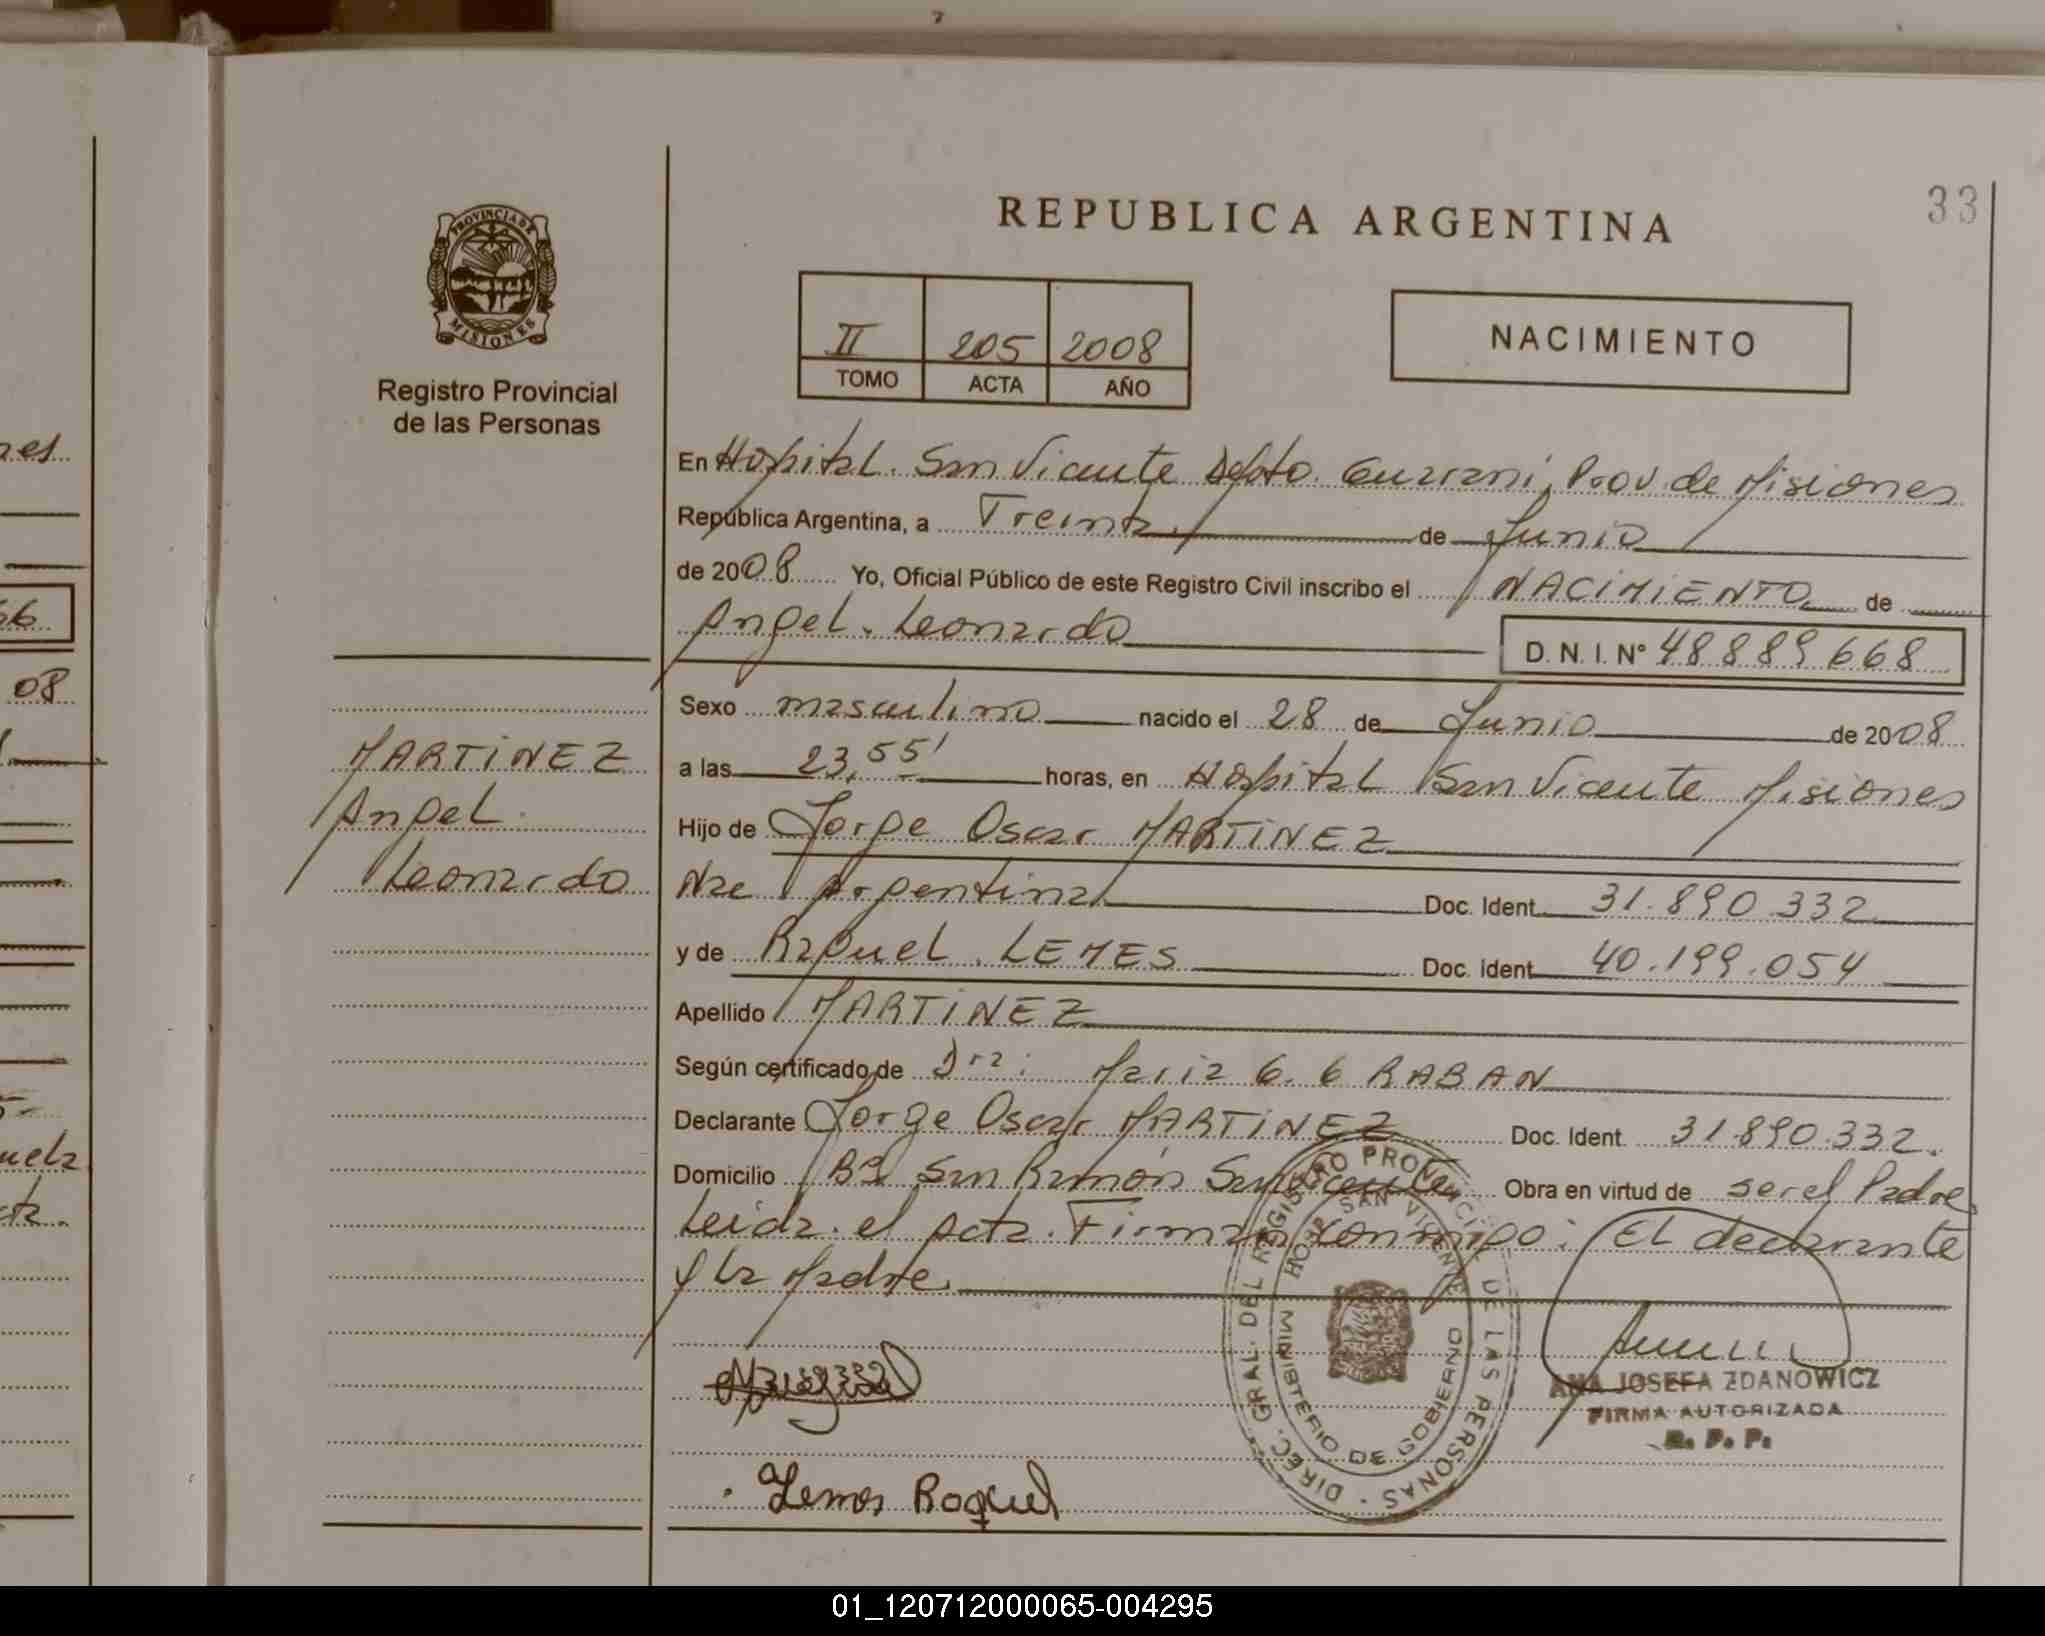 33
REPUBLICA ARGENTINA
PROVINCIA DE
MISIONES
Registro Provincial
de las Personas
II 205 2008
TOMO ACTA AÑO
NACIMIENTO
En Hospital San Vicente Depto. Guarani, Prov. de Misiones
República Argentina, a Treinta de Junio
de 2008 Yo, Oficial Público de este Registro Civil inscribo el NACIMIENTO de
Angel Leonardo D.N.I. N° 48889668
Sexo masculino nacido el 28 de Junio de 2008
a las 23,55' horas, en Hospital San Vicente Misiones
Hijo de Jorge Oscar MARTINEZ
Nac Argentina Doc. Ident. 31.890.332
y de Raquel LEMES Doc. Ident. 40.199.054
Apellido MARTINEZ
Según certificado de Dra: Maria G. G RABAN
Declarante Jorge Oscar MARTINEZ Doc. Ident. 31.890.332.
Domicilio Bº San Ramón San Vicente Obra en virtud de ser el Padre
Leida el Acta. Firman conmigo: El declarante
y la Madre
MARTINEZ
Angel
Leonardo
Lemes Raquel
DIREC. GRAL. DEL REGISTRO PROVINCIAL DE LAS PERSONAS
HOSP. SAN VICENTE
MINISTERIO DE GOBIERNO
ANA JOSEFA ZDANOWICZ
FIRMA AUTORIZADA
R. P. P.
66
08
01_120712000065-004295